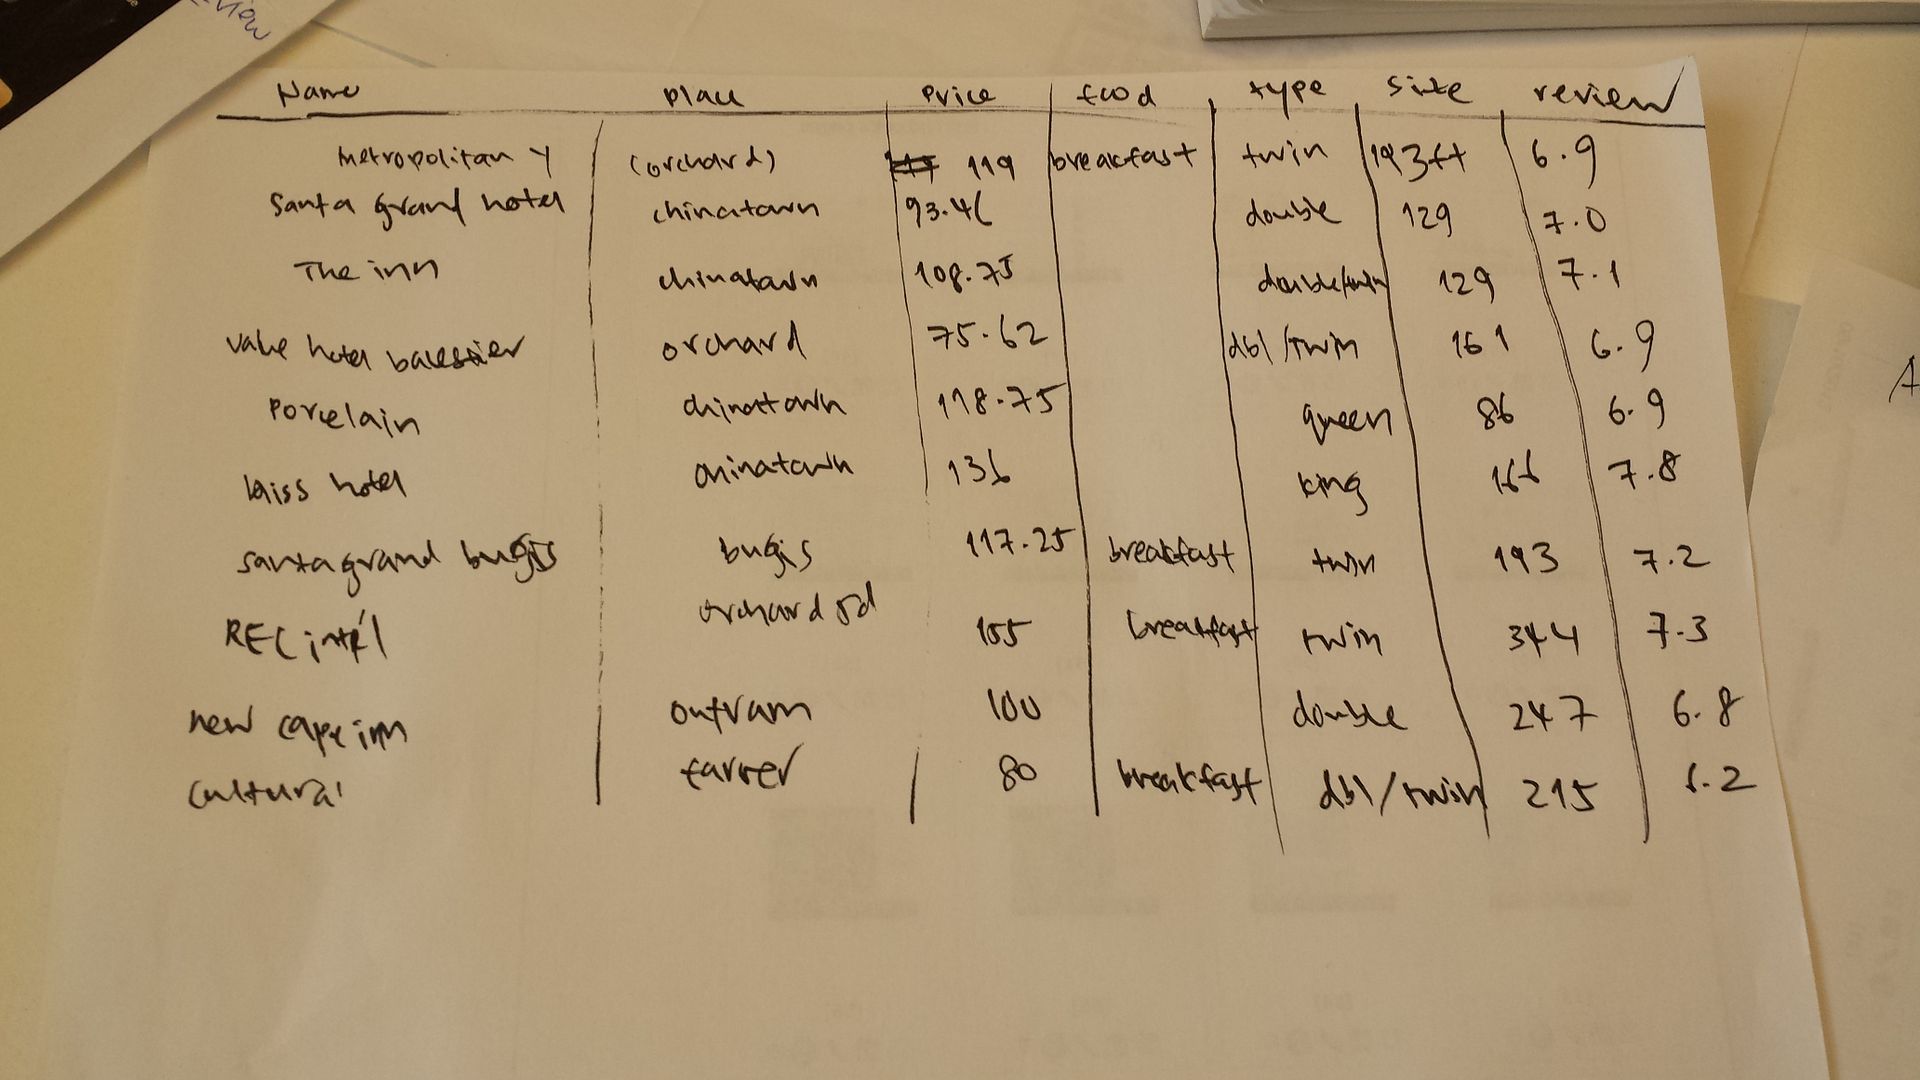 view
Name place price food type size review
Metropolitan Y (orchard) 119 breakfast twin 193ft 6.9
Santa grand hotel chinatown 93.46 double 129 7.0
The inn chinatown 108.75 double/twin 129 7.1
value hotel balestier orchard 75.62 dbl/twin 161 6.9
Porcelain chinatown 118.75 queen 86 6.9
kiss hotel chinatown 136 king 166 7.8
santa grand bugis bugis 117.25 breakfast twin 193 7.2
REC int'l orchard rd 105 breakfast twin 344 7.3
new cape inn outram 100 double 247 6.8
cultural farrer 80 breakfast dbl/twin 215 6.2